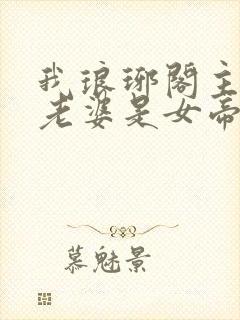 我琅琊阁主
老婆是女帝
慕魅景